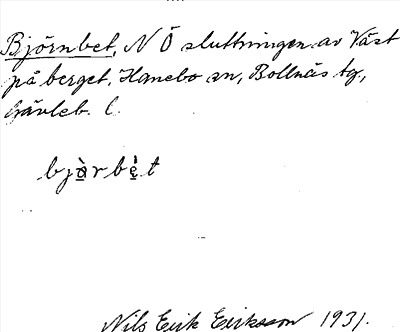 Björnbet, N Ö sluttningen av Väst
på berget, Hanebo sn, Bollnäs tg,
Gävleb. l.
bjàrbèt
Nils Erik Eriksson 1931.